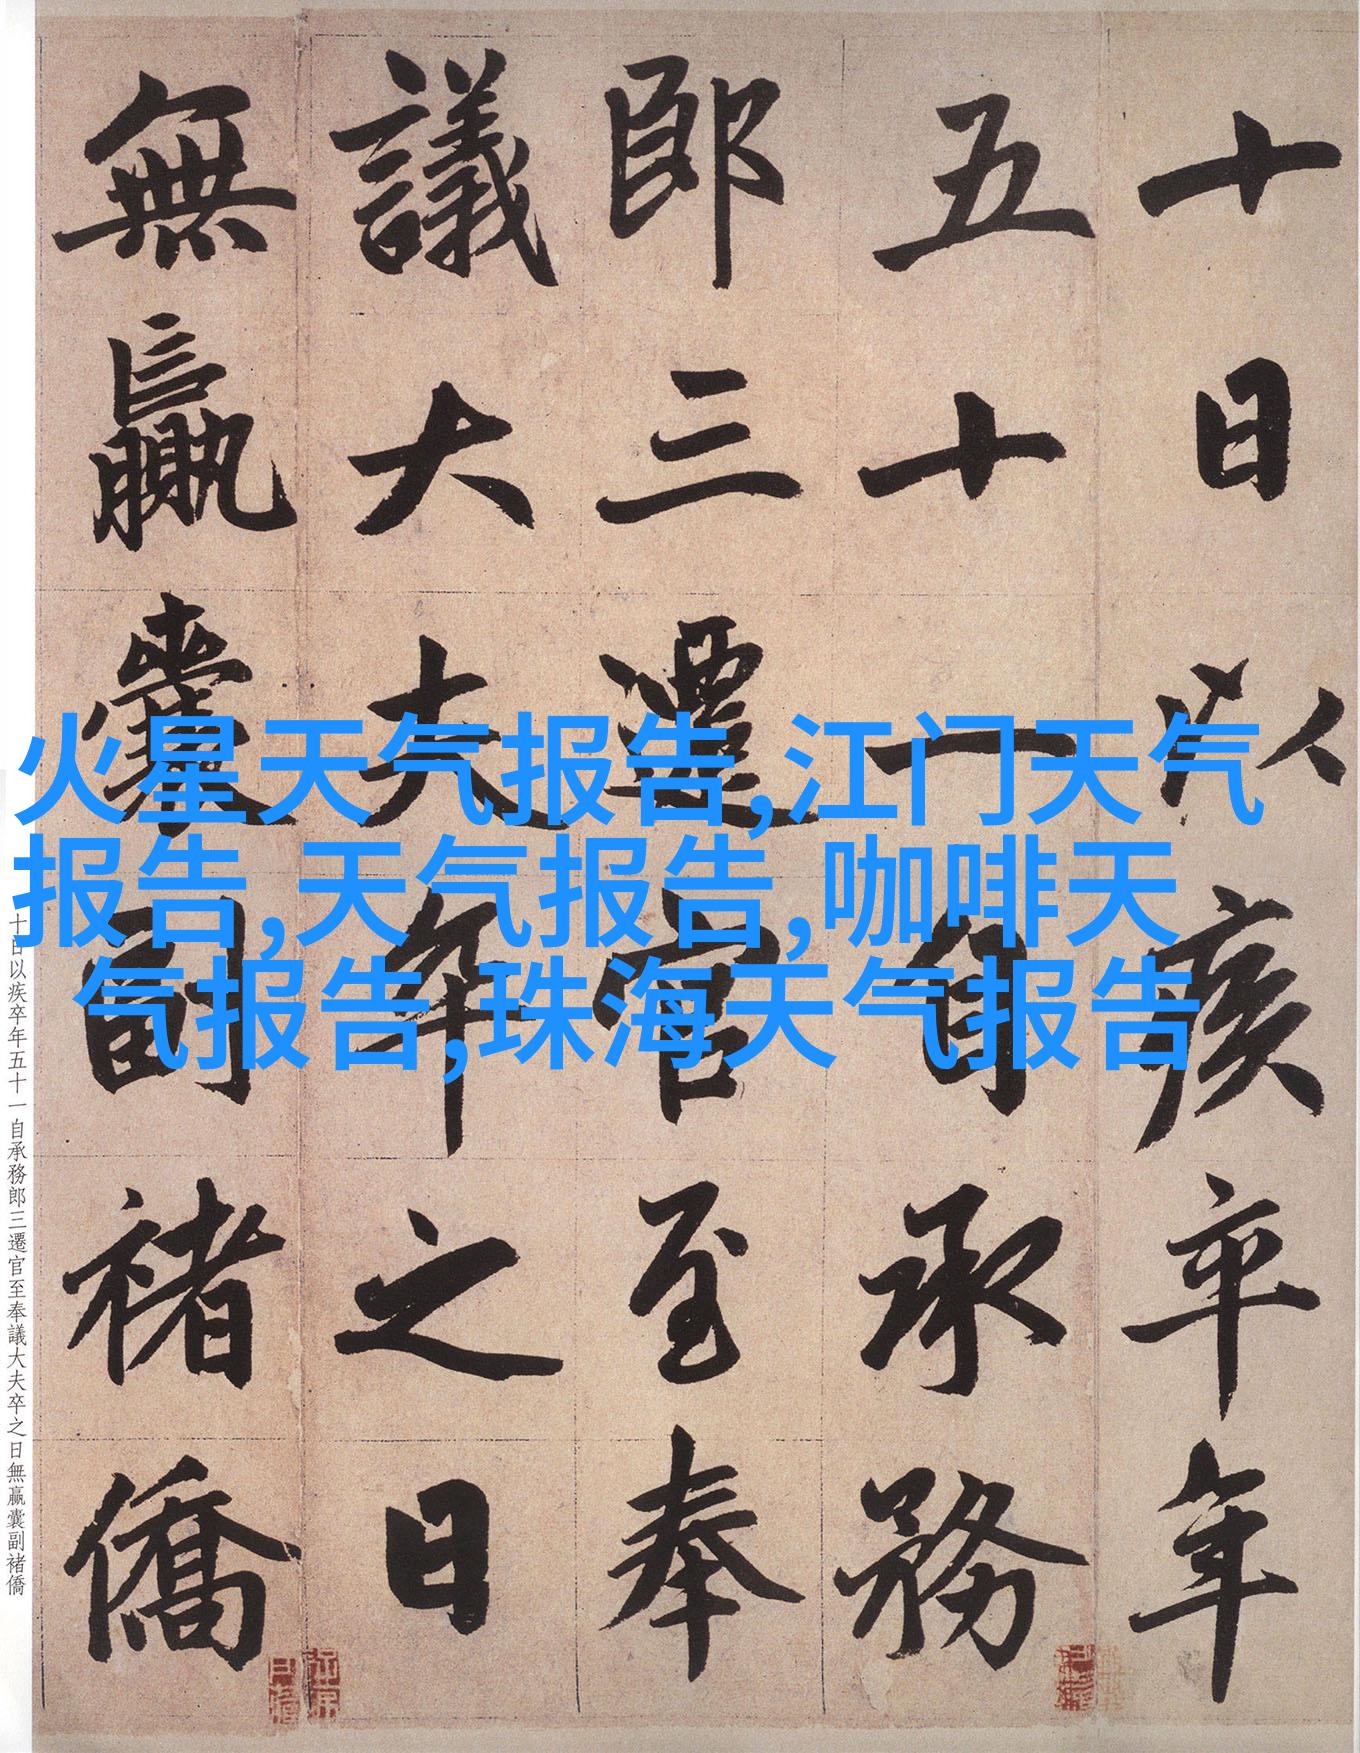 十日以疾卒年
五十一自承務
郎三遷官至奉
議大夫卒之日
無贏囊副褚僑
火星天气报告,江门天气
报告,天气报告,咖啡天
气报告,珠海天气报告
十日以疾卒年五十一自承務郎三遷官至奉議大夫卒之日無贏囊副褚僑